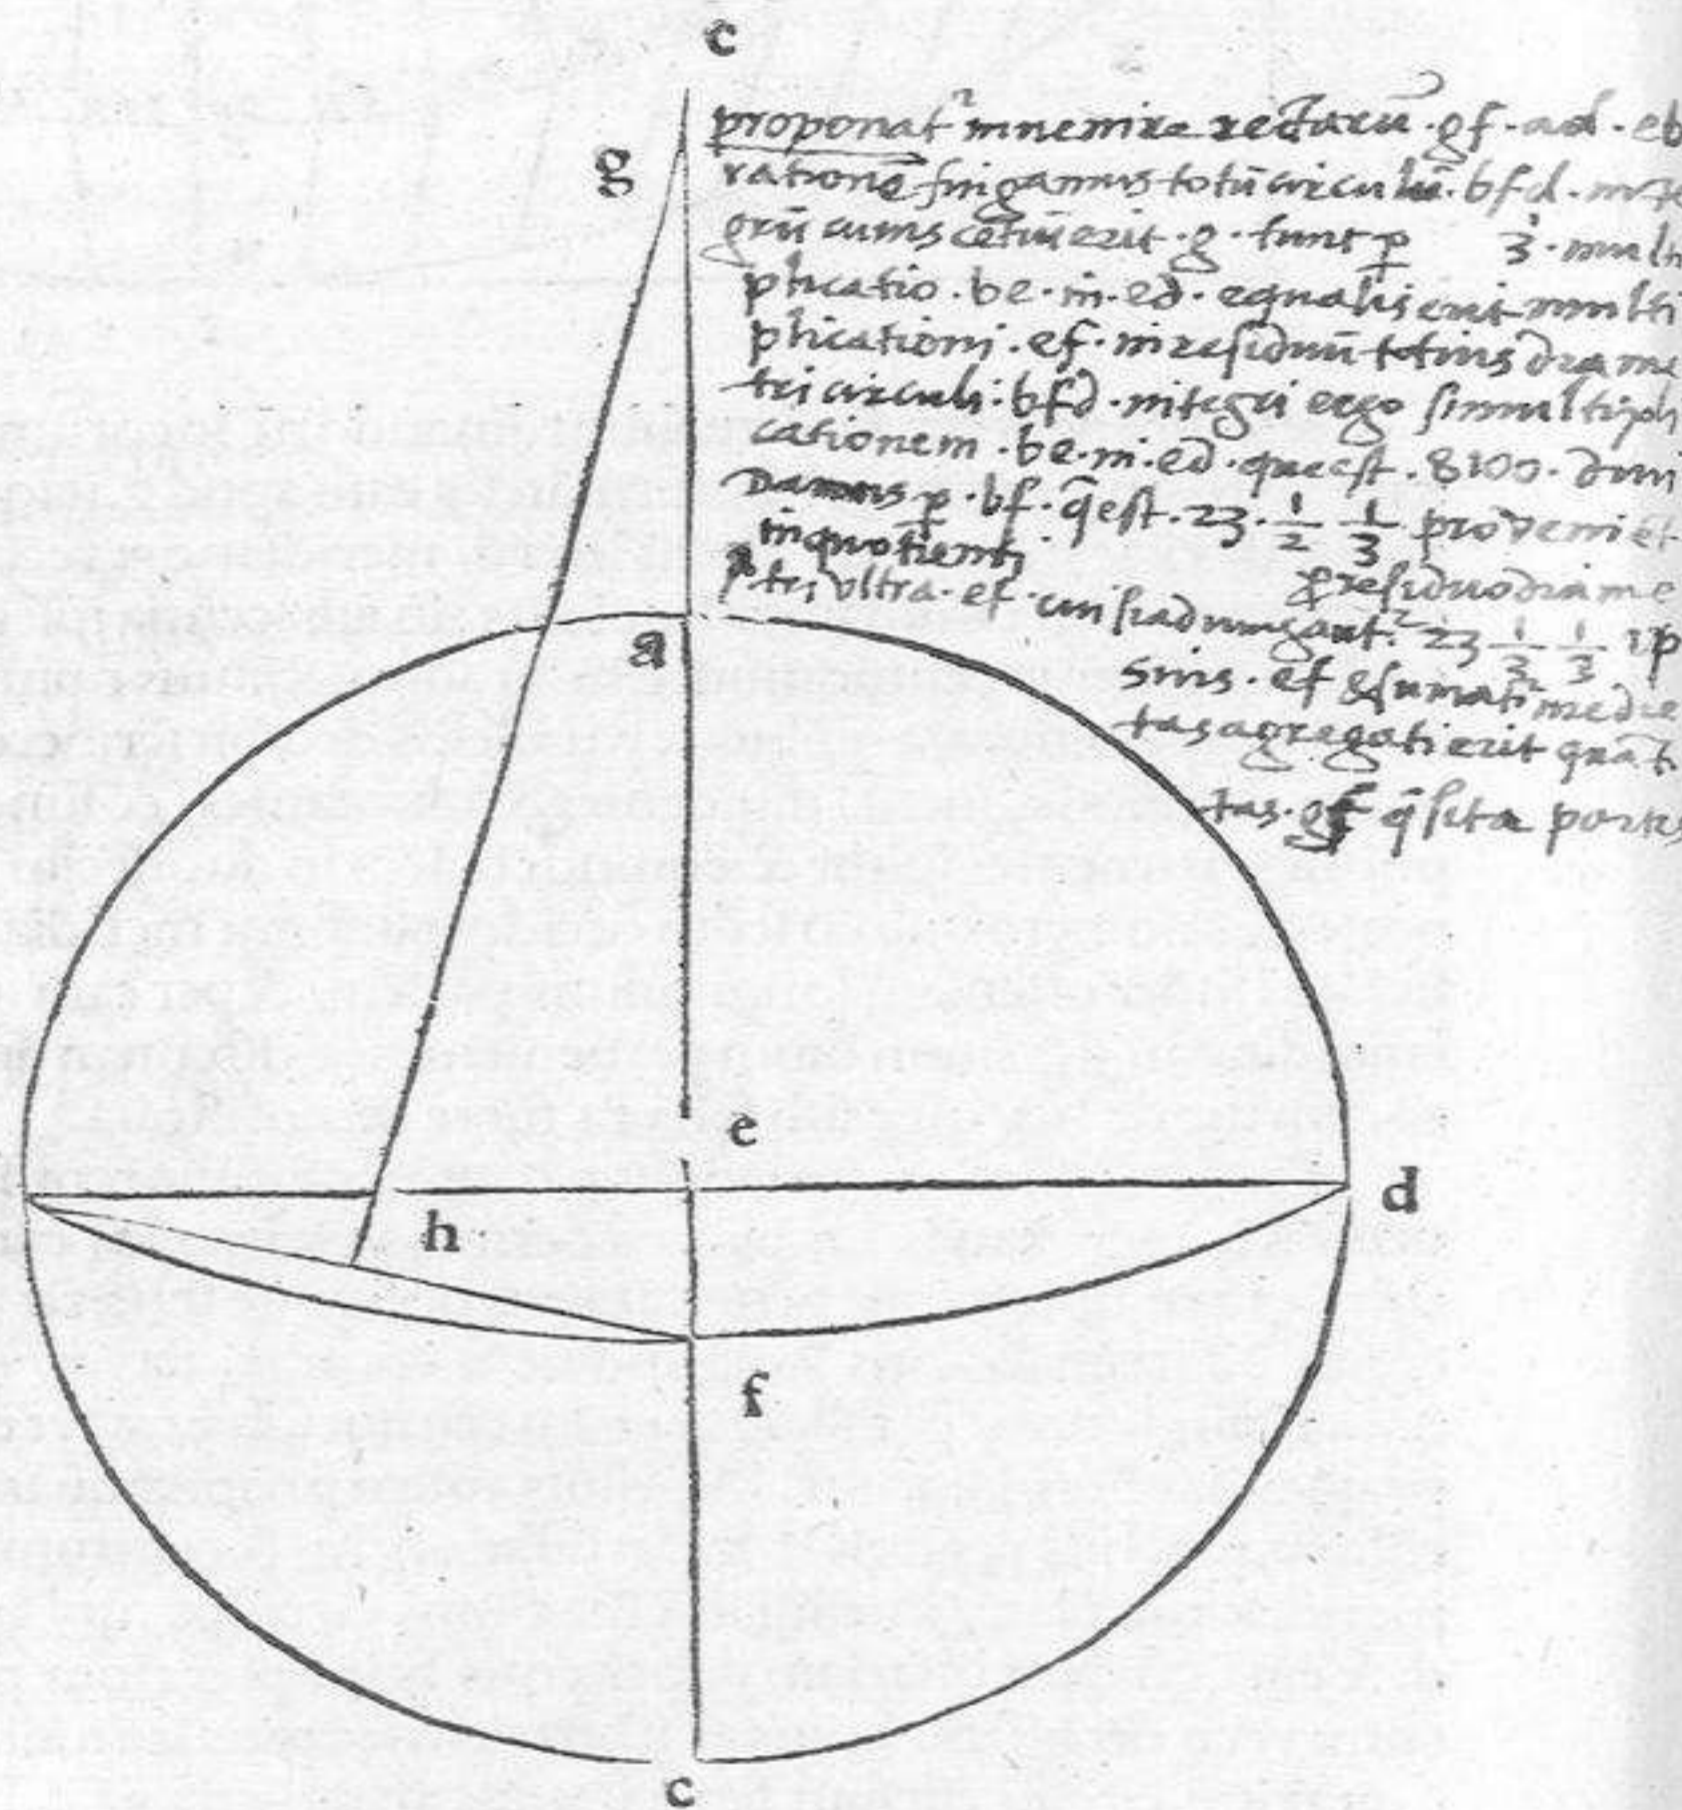 c
g
proponat² inuenire rectarū · gf · ad · eb
rationē fingamus totū circulū · bfd · inte
grū cuius cētrū erit · g · tunc p 3 · multi
plicatio · be · in · ed · equalis erit multi
plicationi · ef · in residuū totius diame
tri circuli · bfd · integri ergo si multipli
cationem · be · in · ed · que est · 8100 · diui
damus p · bf · q̄ est · 23 · 1/2 1/3 proveniet
in quotienti
p residuo diame
tri vltra · ef · cui si adiungant² 23 1/2 1/3 ip
sius · ef & sumat² medie
tas agregati erit quāt
tas · gf q̄sita partis
a
e
d
h
f
c